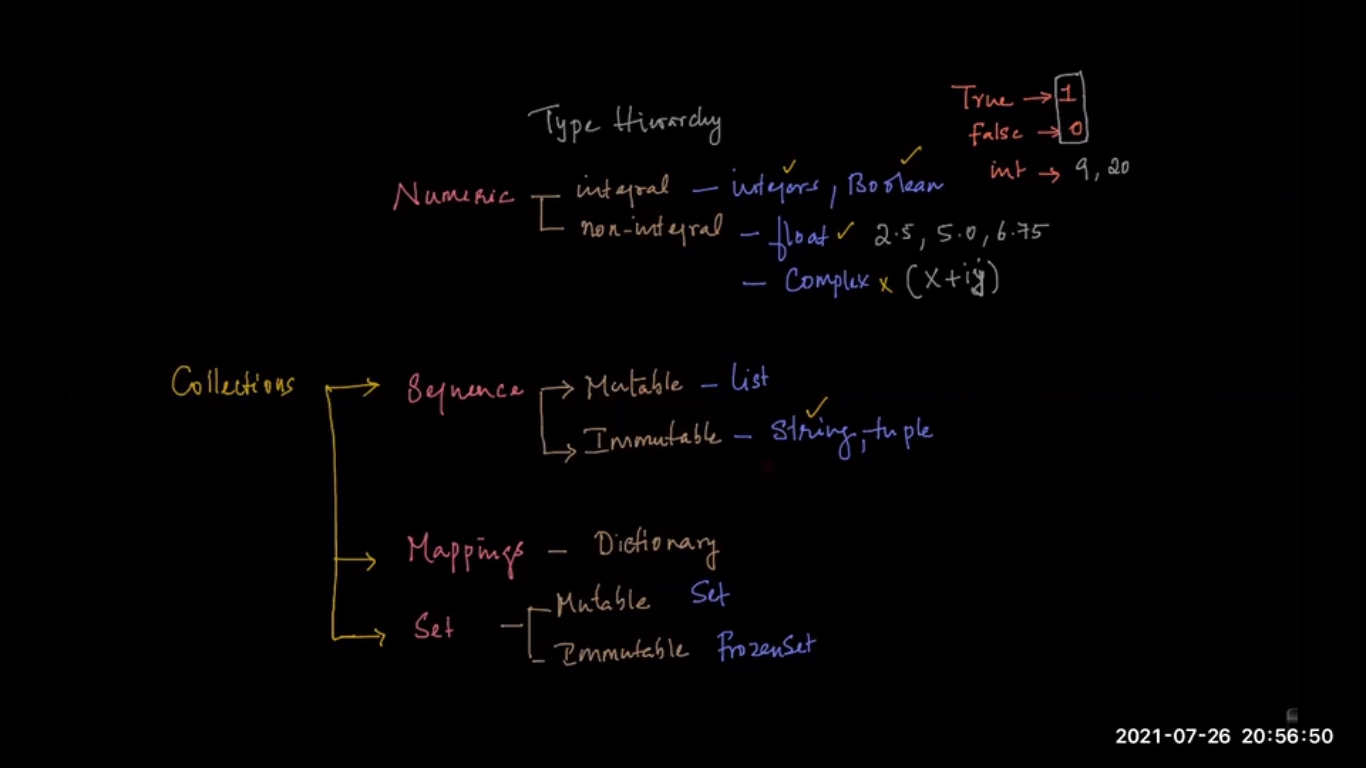 Type Hierarchy
True → 1
false → 0
int → 9, 20
Numeric — integral — integers ✓, Boolean ✓
non-integral — float ✓ 2.5, 5.0, 6.75
— Complex x (x+iy)
Collections → Sequence → Mutable — List
→ Immutable — String ✓, tuple
→ Mappings — Dictionary
→ Set — Mutable Set
Immutable FrozenSet
2021-07-26 20:56:50